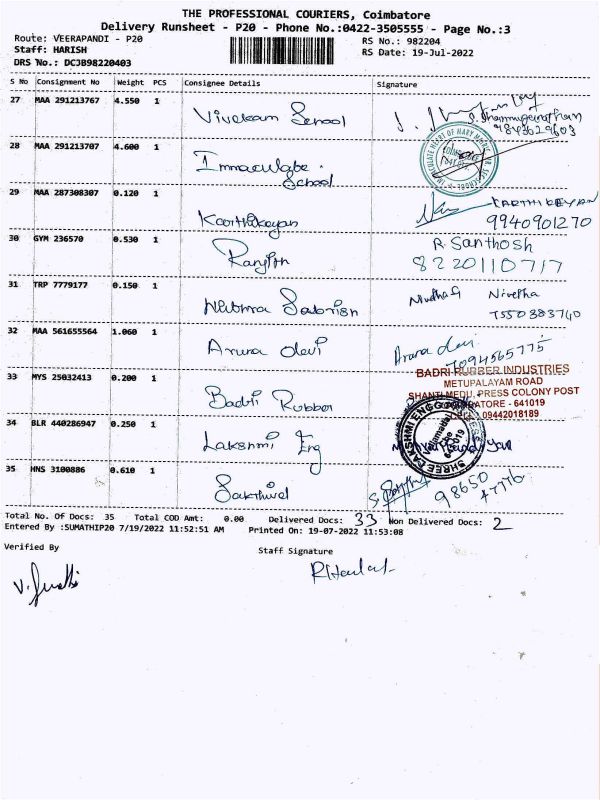 THE PROFESSIONAL COURIERS, Coimbatore
Delivery Runsheet - P20 - Phone No.:0422-3505555 - Page No.:3
Route: VEERAPANDI - P20
RS No.: 982204
Staff: HARISH
RS Date: 19-Jul-2022
DRS No.: DCJB98220403
S No Consignment No Weight PCS Consignee Details Signature
27 MAA 291213767 4.550 1 Vivekam School
S. Shanmuganathan
9843629603
28 MAA 291213707 4.600 1 Immaculate School
IMMACULATE HEART OF MARY
29 MAA 287308307 0.120 1 Karthikeyan KARTHIKEYAN
9940901270
30 GYM 236570 0.530 1 Ranjith R. Santhosh
8220110717
31 TRP 7779177 0.150 1 Sabrish Nivetha
7550383740
32 MAA 561655564 1.060 1 Aruna devi Aruna devi
7094565775
33 MYS 25032413 0.200 1 Badri Rubber
BADRI RUBBER INDUSTRIES
METUPALAYAM ROAD
SHANTI MEDU, PRESS COLONY POST
COIMBATORE - 641019
Cell: 09442018189
34 BLR 440286947 0.250 1 Lakshmi Eng
SHREE LAKSHMI ENGG
35 HNS 3100886 0.610 1 Sakthivel
98650
47776
Total No. Of Docs: 35 Total COD Amt: 0.00 Delivered Docs: 33 Non Delivered Docs: 2
Entered By :SUMATHIP20 7/19/2022 11:52:51 AM Printed On: 19-07-2022 11:53:08
Verified By Staff Signature